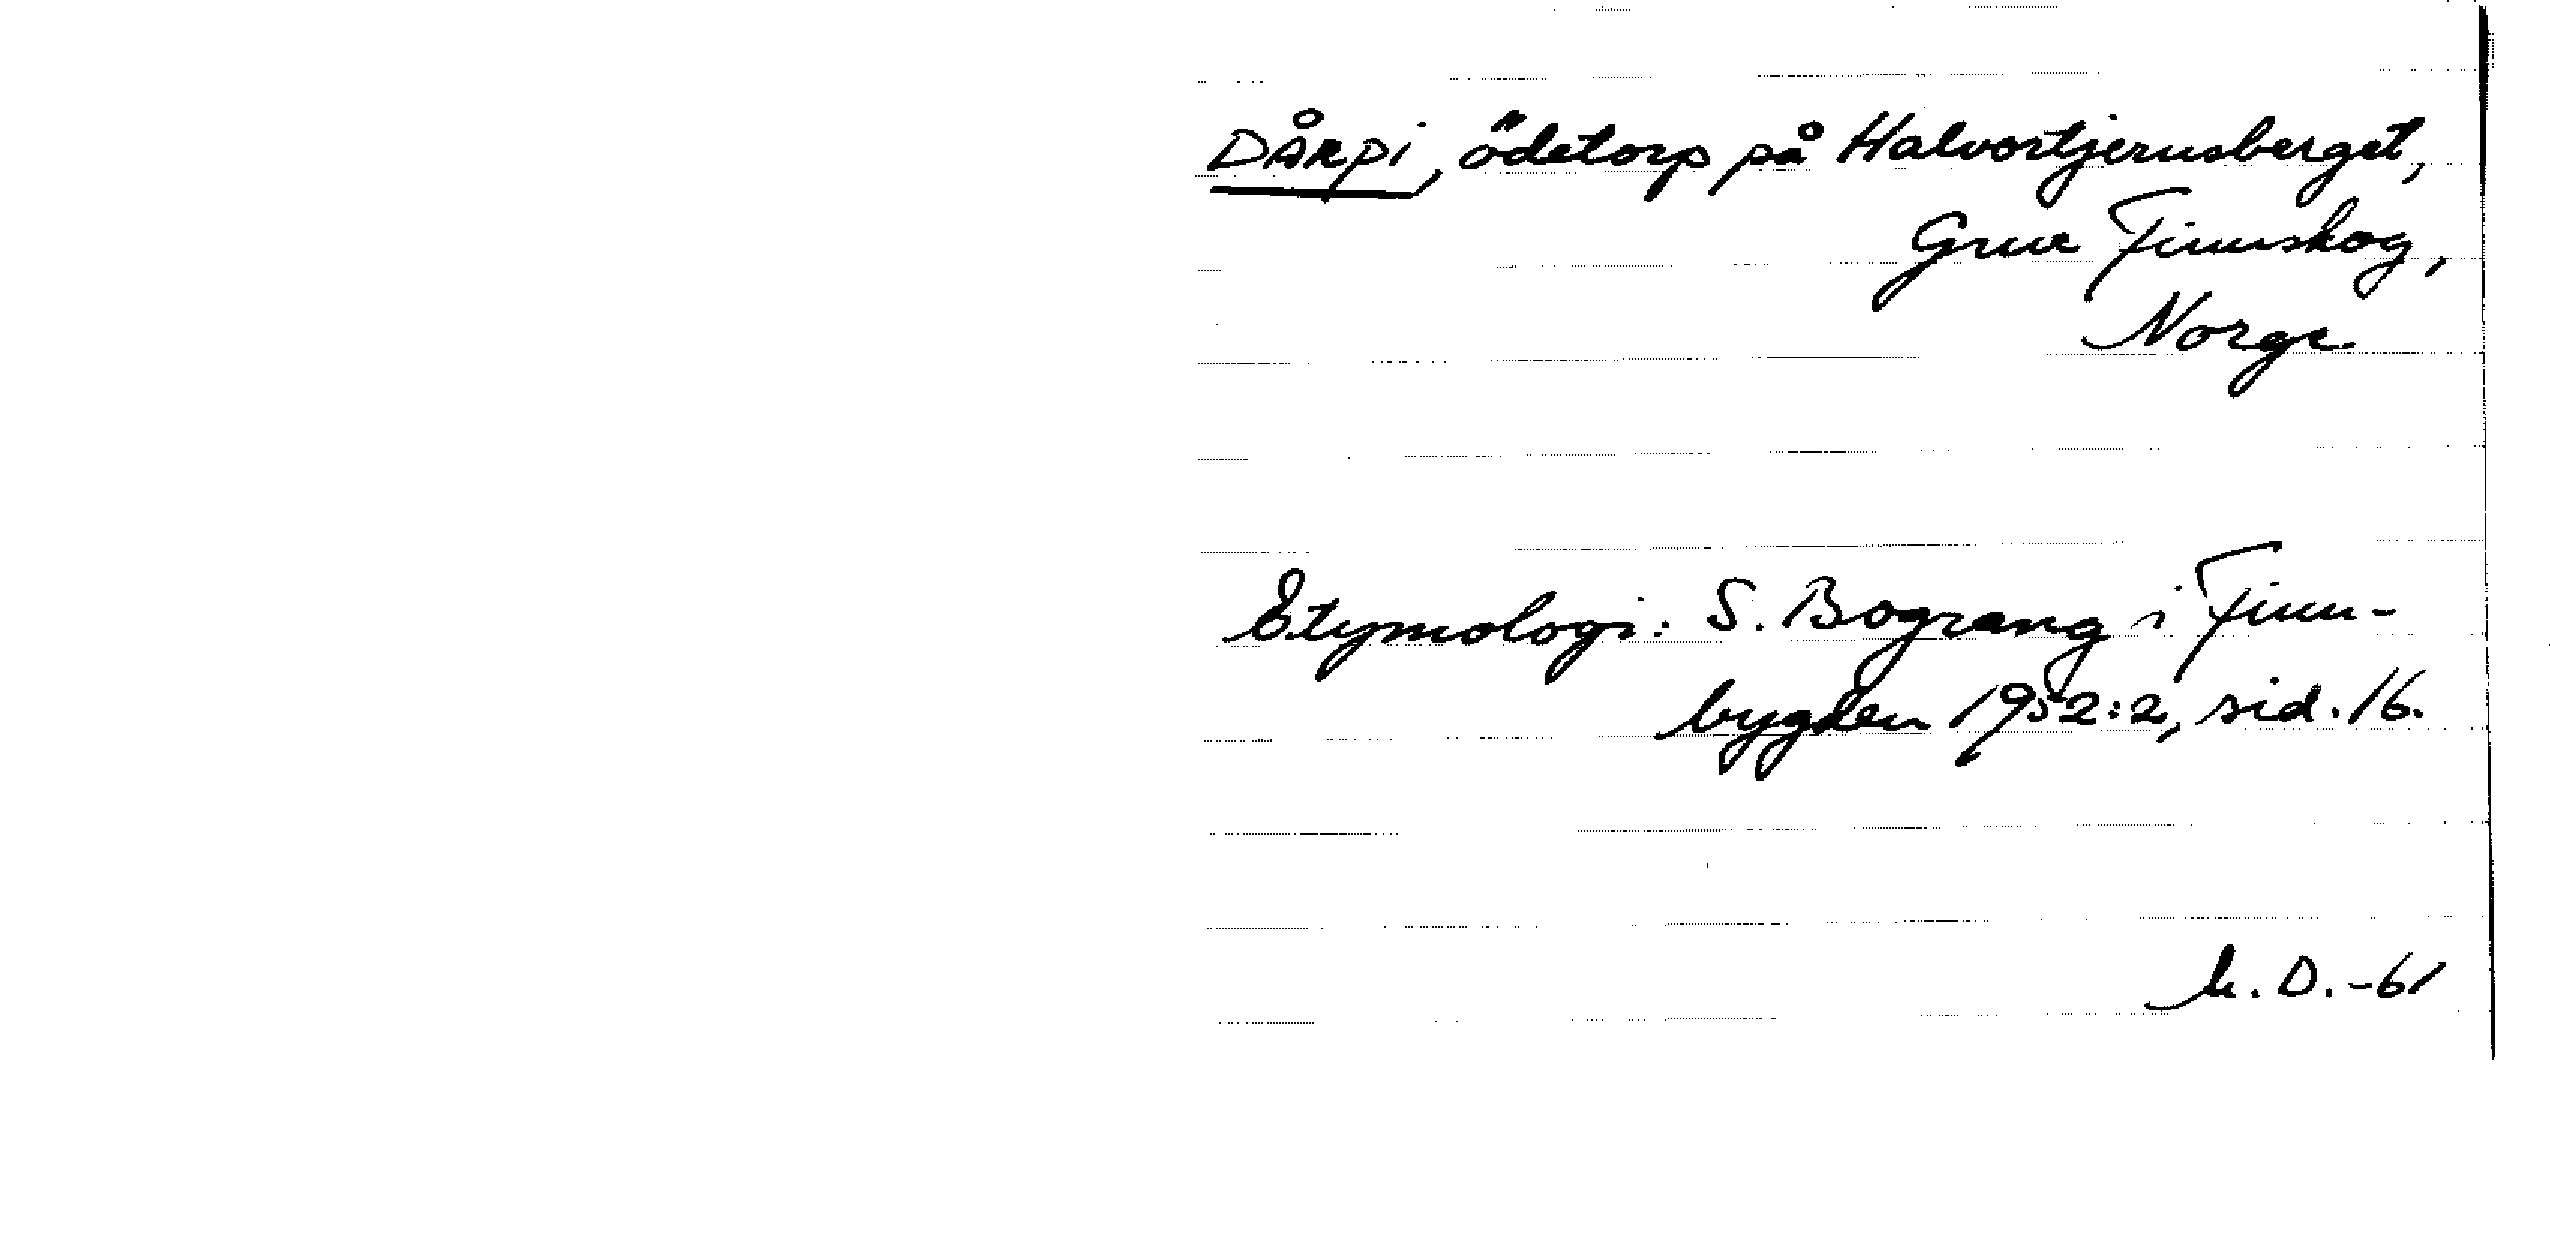 DÅRPI, ödetorp på Halvortjernsberget,
Grue Finnskog,
Norge
Etymologi: S. Bograng i Finn-
bygden 1952:2, sid. 16.
D.-61